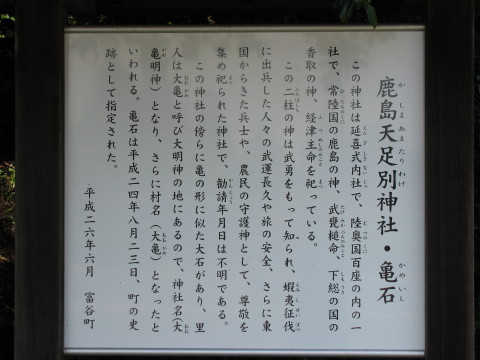 鹿島天足別神社・亀石
かしまあまたりわけ かめいし
この神社は延喜式内社で、陸奥国百座の内の一
社で、常陸国の鹿島の神、武甕槌命、下総の国の
香取の神、経津主命を祀っている。
この二柱の神は武勇をもって知られ、蝦夷征伐
に出兵した人々の武運長久や旅の安全、さらに東
国からきた兵士や、農民の守護神として、尊敬を
集め祀られた神社で、勧請年月日は不明である。
この神社の傍らに亀の形に似た大石があり、里
人は大亀と呼び大明神の地にあるので、神社名(大
亀明神)となり、さらに村名(大亀)となったと
いわれる。亀石は平成二四年八月二三日、町の史
跡として指定された。
平成二六年六月 富谷町